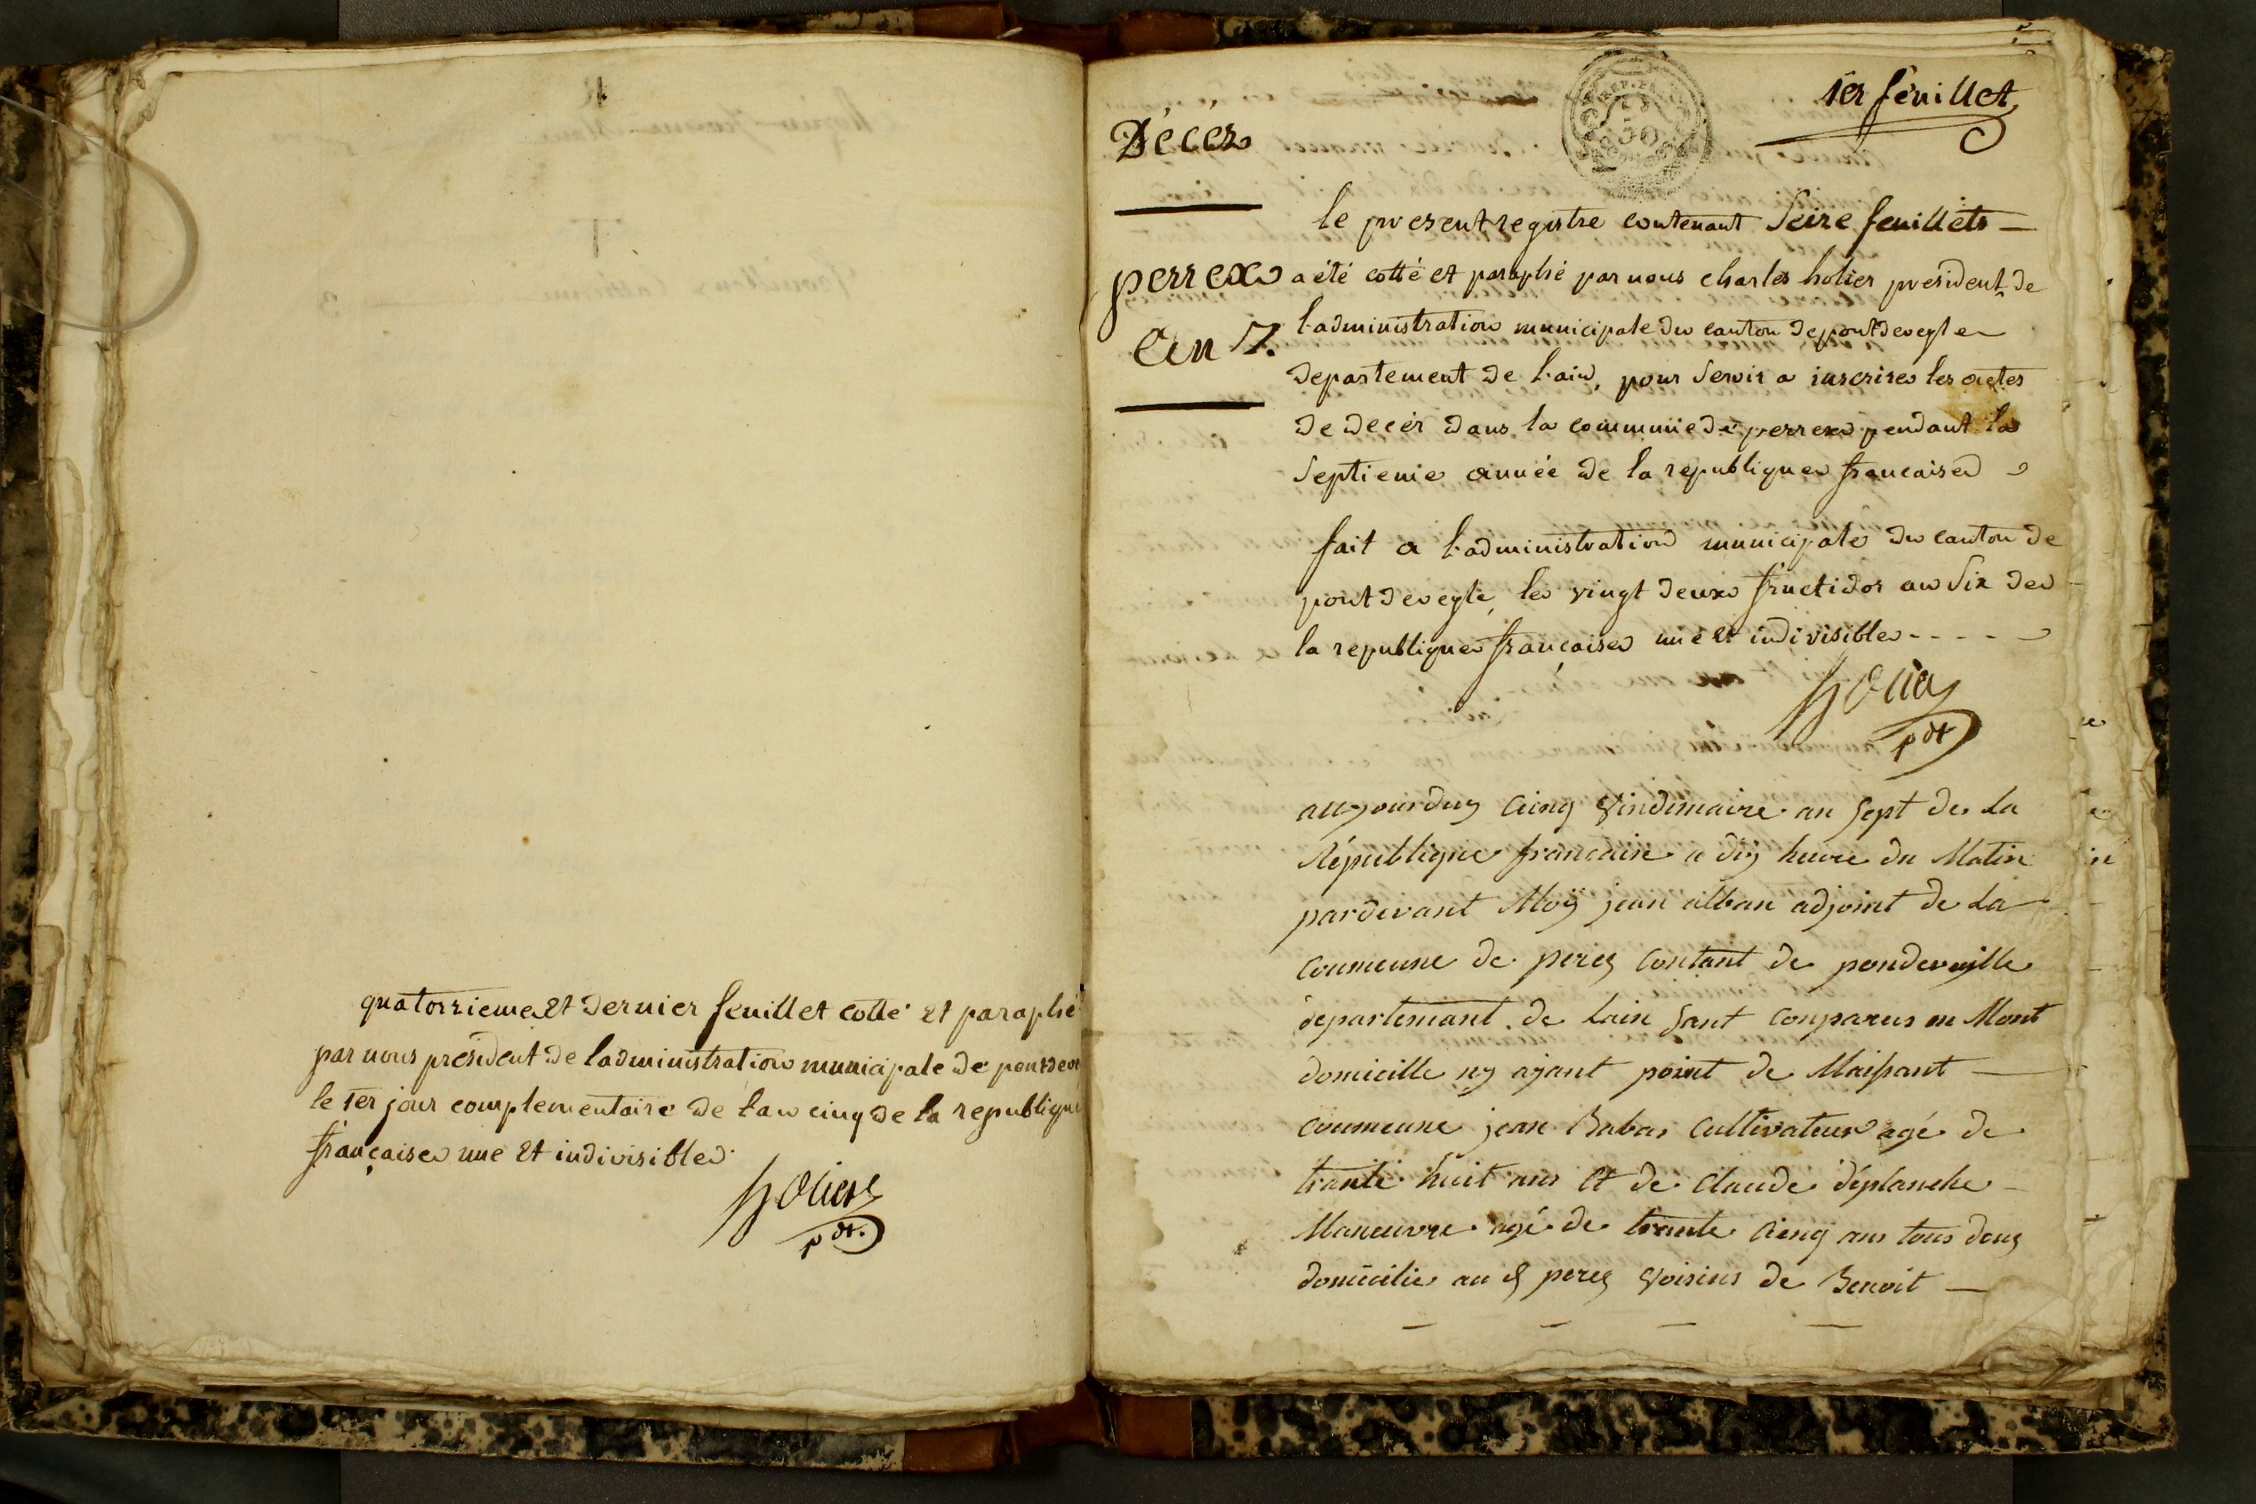 quatorzieme et dernier feuillet cotté et paraphé
par nous président de l'administration municipale de pontdeve
le 1er jour complementaire de l'an cinq de la republique
française une et indivisible
holier
pdt.
1er feuillet
Décés
perrex
An 7.
le present registre contenant Seize feuillets
a été cotté et paraphé par nous charles holier président de
l'administration municipale du canton de pontdevegle
departement de l'ain, pour servir a inscrire les actes
de decés dans la commune de perrex pendant la
septieme année de la republique francaise
fait a l'administration municipale du canton de
pontdevegle, le vingt deux fructidor an Six de
la republique française une et indivisible
holier
pdt
aujourduy cienq vindimaire an sept de la
République francaise a dix heure du Matin
pardevant Moy jean alban adjoint de La
coumeune de perex contant de pondeveille
départemant de Lain sant conparus en Mont
domicille ny ajant point de Maisant
coumeune jean Babas cultivateur agé de
trante huit ans et de Claude déplanche
Maneuvre agé de trante cienq ans tous doux
domicilie au d perex voisins de Benoit